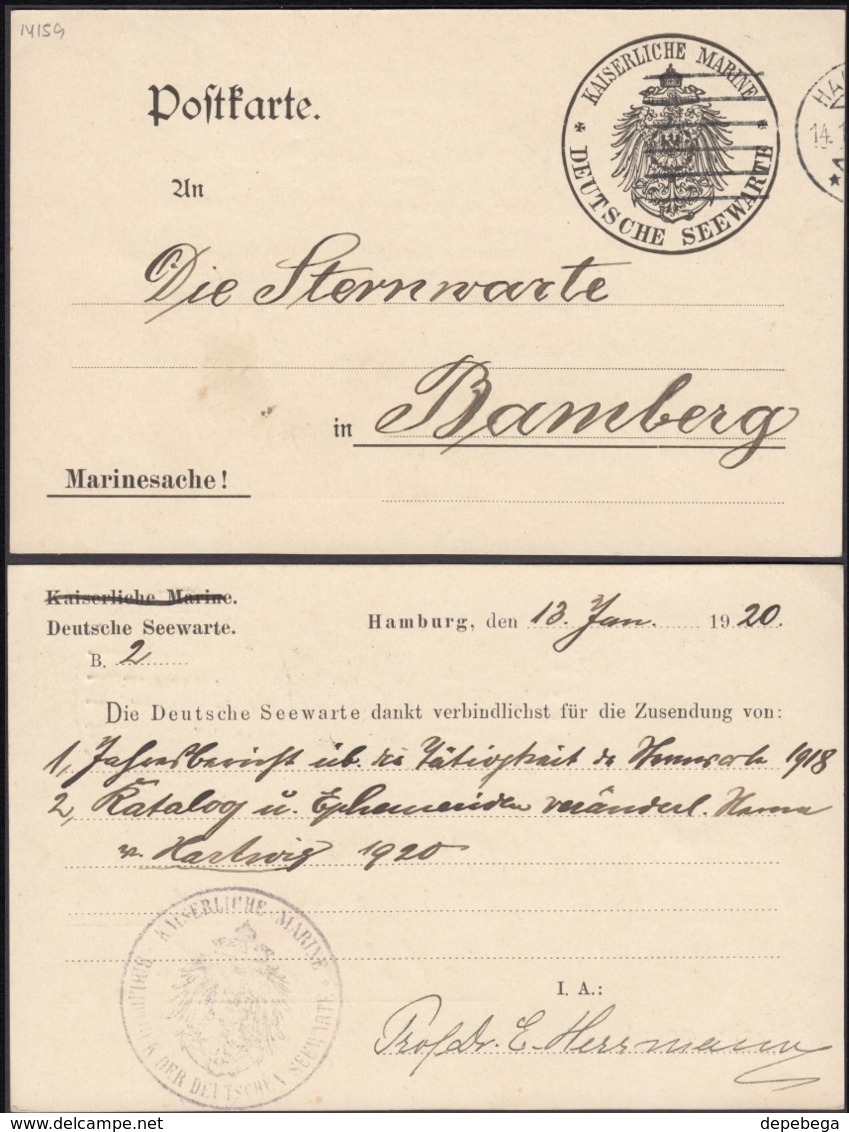 14159
Postkarte.
KAISERLICHE MARINE
DEUTSCHE SEEWARTE
HA
14.
*1
An
Die Sternwarte
in Bamberg
Marinesache!
Kaiserliche Marine.
Deutsche Seewarte.
Hamburg, den 13. Jan. 1920.
B. 2
Die Deutsche Seewarte dankt verbindlichst für die Zusendung von:
1, Jahresbericht üb. die Tätigkeit d. Sternwarte 1918
2, Katalog u. Ephemeriden veränderl. Sterne
v. Hartwig 1920
KAISERLICHE MARINE
BIBLIOTHEK DER DEUTSCHEN SEEWARTE
I. A.:
Prof. Dr. E. Herrmann
depebega